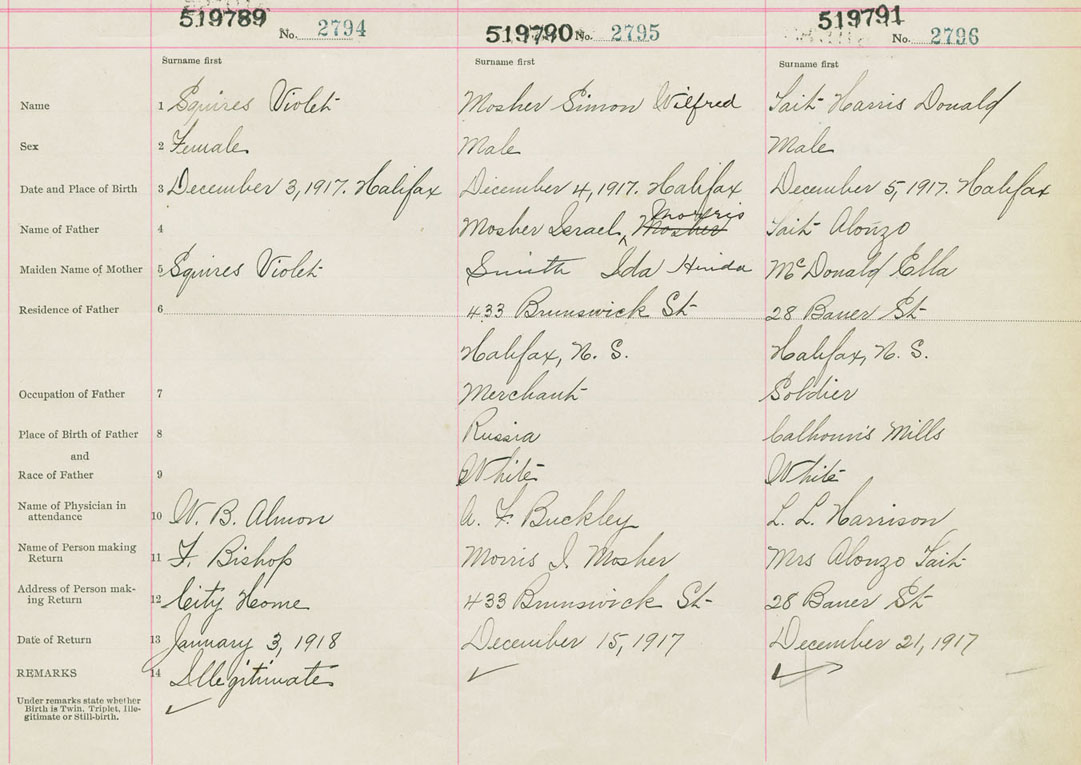 519789 No. 2794 519790 No. 2795 519791 No. 2796
Surname first Surname first Surname first
Name 1 Squires Violet Mosher Simon Wilfred Tait Harris Donald
Sex 2 Female Male Male
Date and Place of Birth 3 December 3, 1917. Halifax December 4, 1917. Halifax December 5, 1917. Halifax
Morris
Name of Father 4 Mosher Israel, ^ Mosher Tait Alonzo
Maiden Name of Mother 5 Squires Violet Smith Ida Hinda McDonald Ella
Residence of Father 6 433 Brunswick St 28 Bauer St
Halifax, N. S. Halifax, N. S.
Occupation of Father 7 Merchant Soldier
Place of Birth of Father 8 Russia Calhouns Mills
and
Race of Father 9 White White
Name of Physician in
attendance 10 W. B. Almon A. F. Buckley L. L. Harrison
Name of Person making
Return 11 F. Bishop Morris I. Mosher Mrs Alonzo Tait
Address of Person mak-
ing Return 12 City Home 433 Brunswick St 28 Bauer St
Date of Return 13 January 3, 1918 December 15, 1917 December 21, 1917
REMARKS 14 Illegitimate
Under remarks state whether
Birth is Twin, Triplet, Ille-
gitimate or Still-birth.